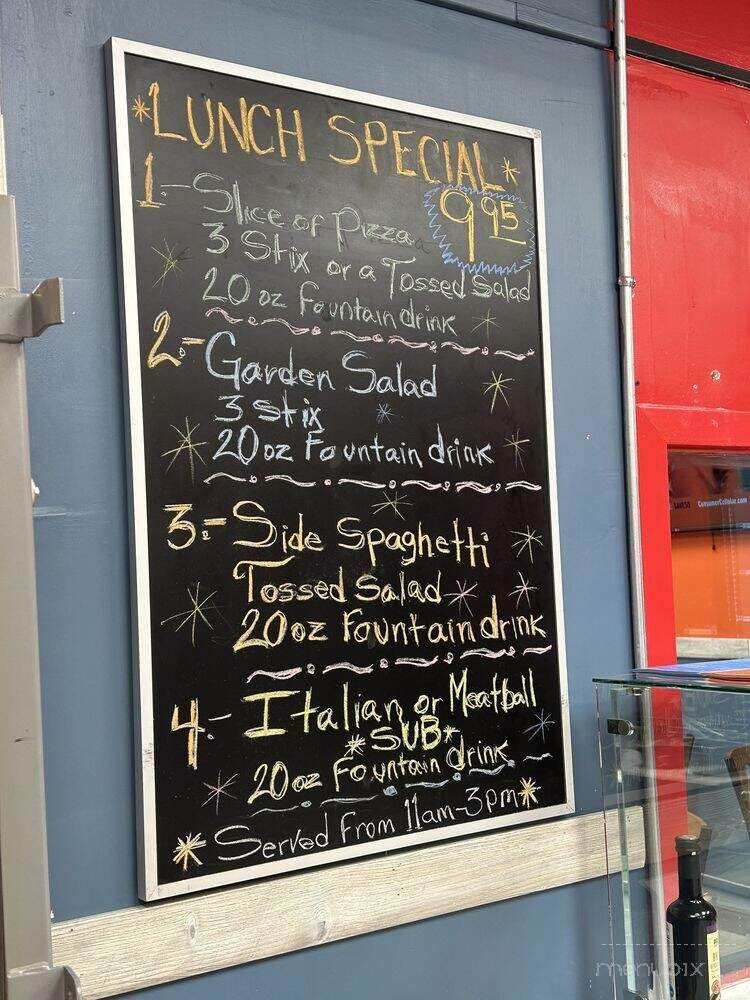 *LUNCH SPECIAL*
9.95
1.- Slice of Pizza
3 Stix or a Tossed Salad
20 oz Fountain drink
2.- Garden Salad
3 Stix
20 oz Fountain drink
3.- Side Spaghetti
Tossed Salad
20 oz Fountain drink
4.- Italian or Meatball
*SUB*
20 oz Fountain drink
*Served From 11am-3pm*
ConsumerCellular.com
menupix